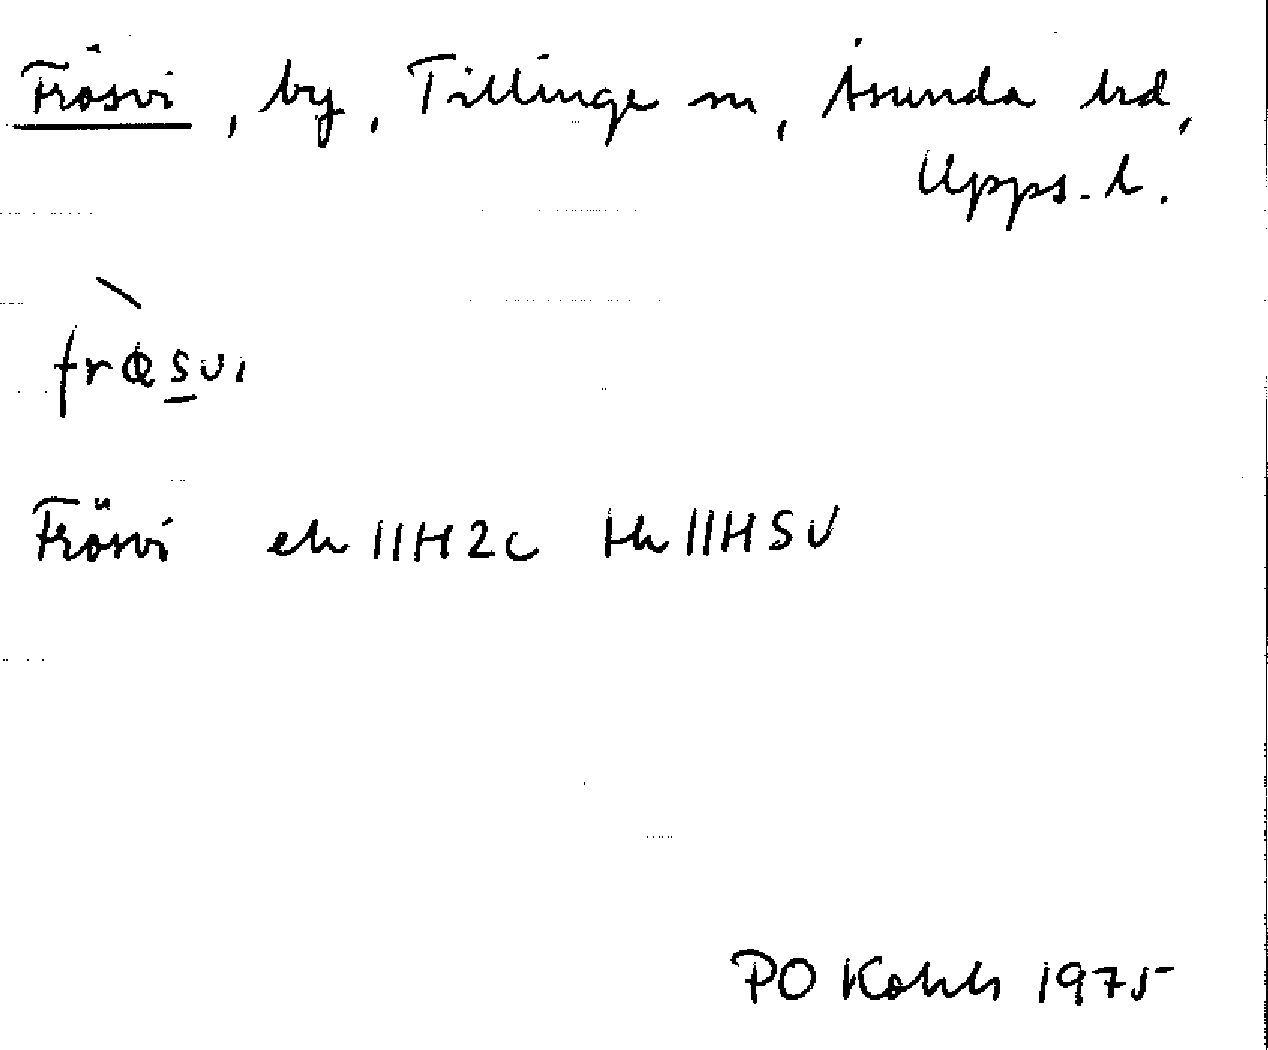 Frösvi, by, Tillinge sn, Åsunda hd,
Upps. l.
frœsvi
Frösvi ek 11H2c tk 11H SV
PO 1975